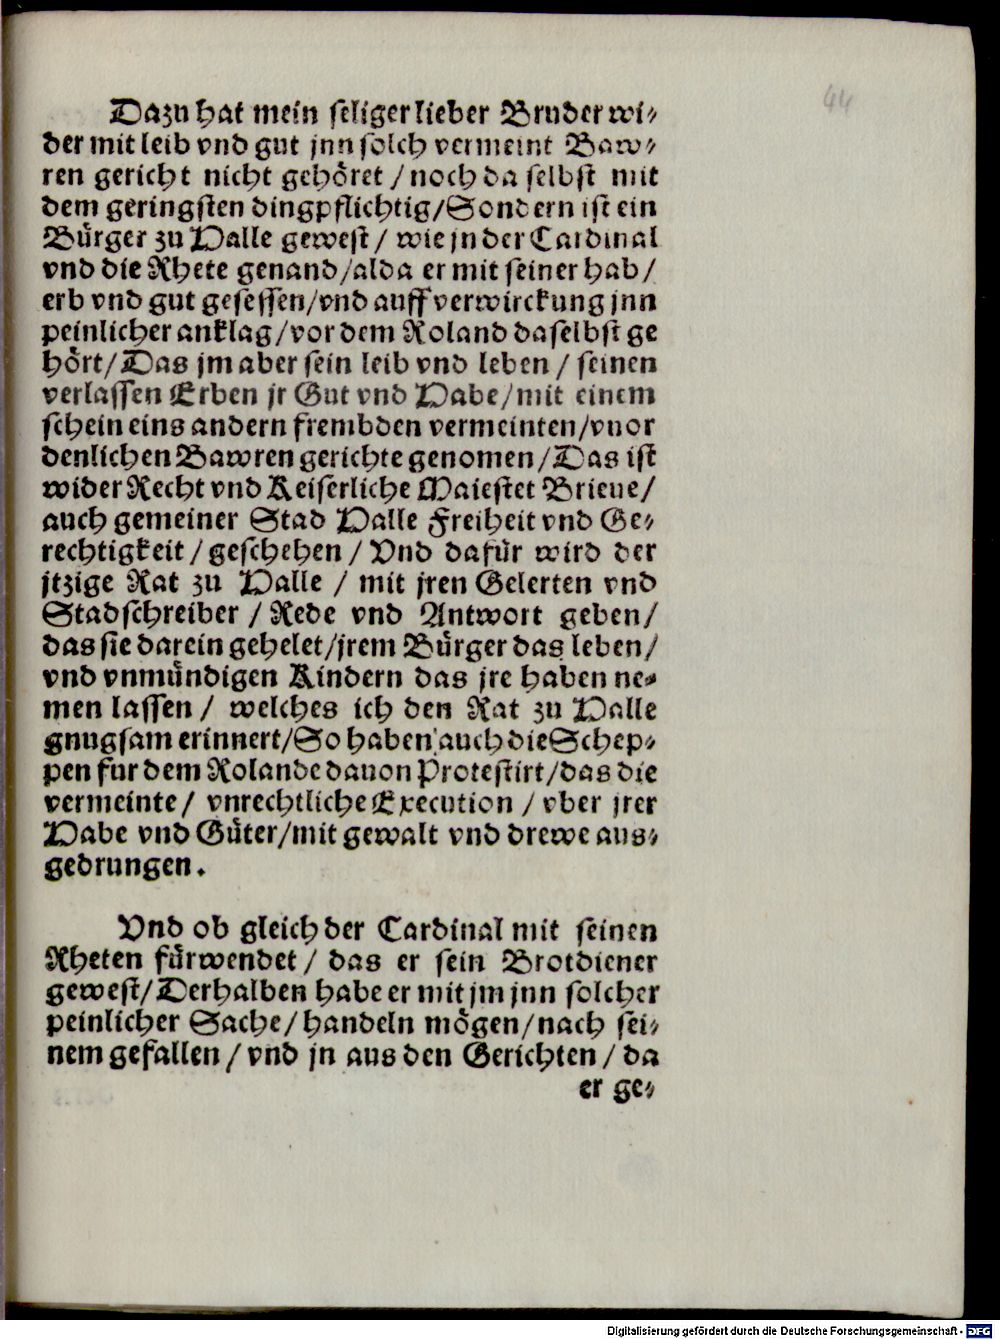 44
Dazu hat mein seliger lieber Bruder wi-
der mit leib vnd gut jnn solch vermeint Baw-
ren gericht nicht gehöret / noch da selbst mit
dem geringsten dingpflichtig / Sondern ist ein
Bürger zu Halle gewest / wie jn der Cardinal
vnd die Rhete genand / alda er mit seiner hab /
erb vnd gut gesessen / vnd auff verwirckung jnn
peinlicher anklag / vor dem Roland daselbst ge
hört / Das jm aber sein leib vnd leben / seinen
verlassen Erben jr Gut vnd Habe / mit einem
schein eins andern frembden vermeinten / vnor
denlichen Bawren gerichte genomen / Das ist
wider Recht vnd Keiserliche Maiestet Brieue /
auch gemeiner Stad Halle Freiheit vnd Ge-
rechtigkeit / geschehen / Vnd dafür wird der
jtzige Rat zu Halle / mit jren Gelerten vnd
Stadschreiber / Rede vnd Antwort geben /
das sie darein gehelet / jrem Bürger das leben /
vnd vnmündigen Kindern das jre haben ne-
men lassen / welches ich den Rat zu Halle
gnugsam erinnert / So haben auch die Schep-
pen fur dem Rolande dauon Protestirt / das die
vermeinte / vnrechtliche Execution / vber jrer
Habe vnd Güter / mit gewalt vnd drewe aus-
gedrungen.
Vnd ob gleich der Cardinal mit seinen
Rheten fürwendet / das er sein Brotdiener
gewest / Derhalben habe er mit jm jnn solcher
peinlicher Sache / handeln mögen / nach sei-
nem gefallen / vnd jn aus den Gerichten / da
er ge-
Digitalisierung gefördert durch die Deutsche Forschungsgemeinschaft - DFG